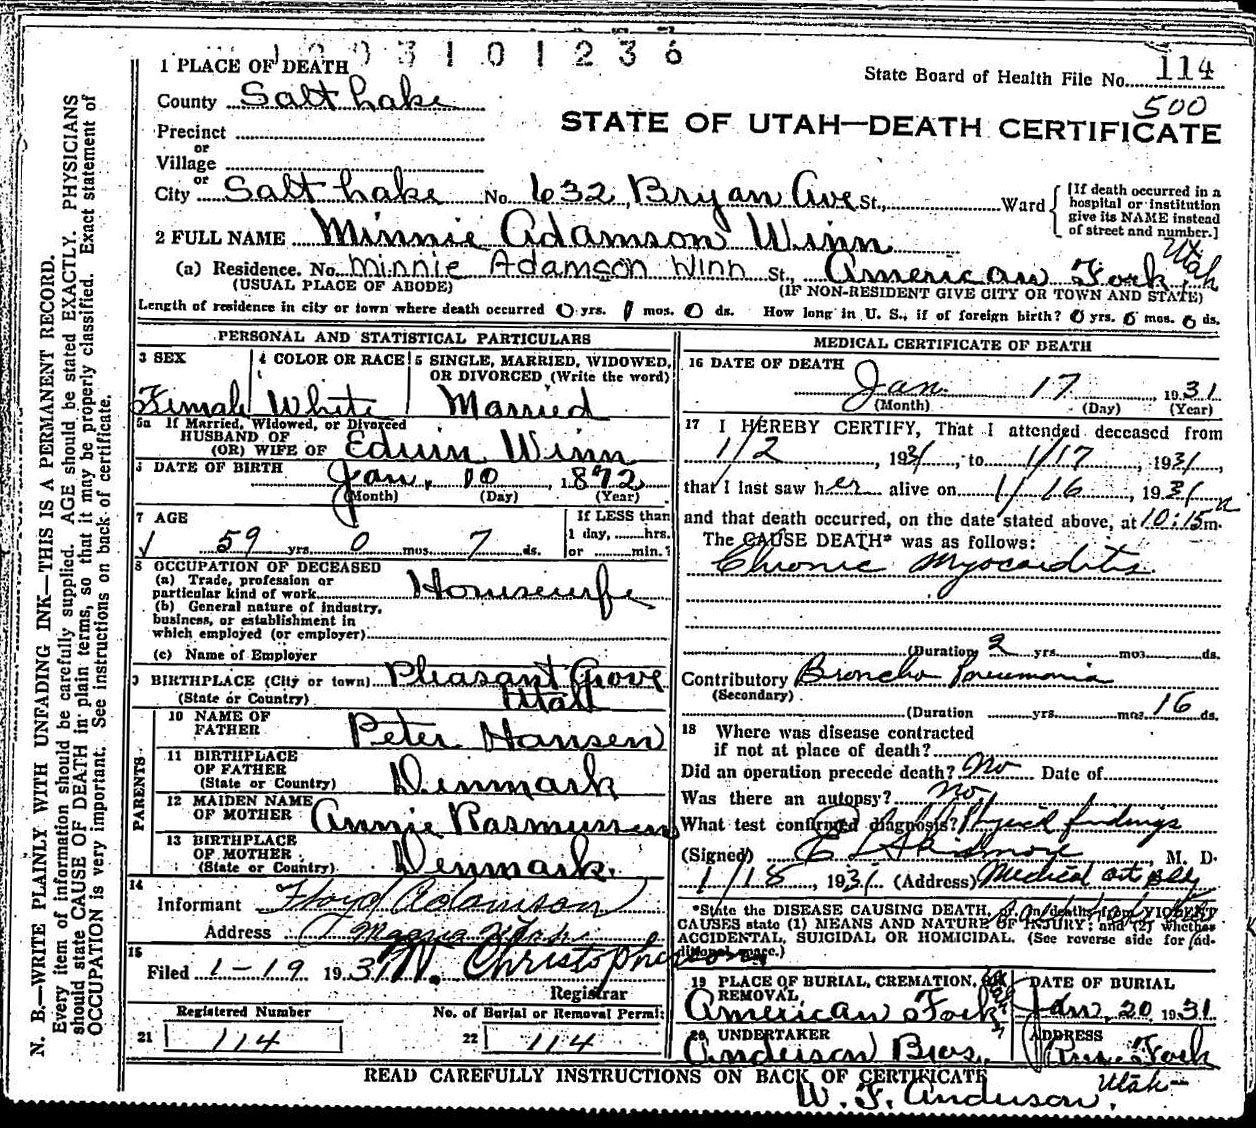 1 2 0 3 1 0 1 2 3 6
State Board of Health File No. 114
500
STATE OF UTAH—DEATH CERTIFICATE
1 PLACE OF DEATH
County Salt Lake
Precinct
or
Village
or
City Salt Lake No. 632 Bryan Ave St., Ward
[If death occurred in a hospital or institution give its NAME instead of street and number.]
2 FULL NAME Minnie Adamson Winn
(a) Residence. No. Minnie Adamson Winn St., American Fork, Utah
(USUAL PLACE OF ABODE) (IF NON-RESIDENT GIVE CITY OR TOWN AND STATE)
Length of residence in city or town where death occurred 0 yrs. 1 mos. 0 ds. How long in U. S., if of foreign birth? 0 yrs. 0 mos. 0 ds.
PERSONAL AND STATISTICAL PARTICULARS
3 SEX
Female
4 COLOR OR RACE
White
5 SINGLE, MARRIED, WIDOWED, OR DIVORCED (Write the word)
Married
5a If Married, Widowed, or Divorced
HUSBAND OF
(OR) WIFE OF Edwin Winn
6 DATE OF BIRTH Jan. 10, 1872
(Month) (Day) (Year)
7 AGE
59 yrs. 0 mos. 7 ds.
If LESS than
1 day, hrs.
or min.?
8 OCCUPATION OF DECEASED
(a) Trade, profession or
particular kind of work Housewife
(b) General nature of industry,
business, or establishment in
which employed (or employer)
(c) Name of Employer
9 BIRTHPLACE (City or town) Pleasant Grove
(State or Country) Utah
PARENTS
10 NAME OF
FATHER Peter Hansen
11 BIRTHPLACE
OF FATHER
(State or Country) Denmark
12 MAIDEN NAME
OF MOTHER Annie Rasmussen
13 BIRTHPLACE
OF MOTHER
(State or Country) Denmark.
14
Informant Floyd Adamson
Address Magna Utah
15
Filed 1-19 1931
Registrar
Registered Number
21 114
No. of Burial or Removal Permit
22 114
MEDICAL CERTIFICATE OF DEATH
16 DATE OF DEATH
Jan. 17, 1931
(Month) (Day) (Year)
17 I HEREBY CERTIFY, That I attended deceased from
1/2, 1931, to 1/17, 1931,
that I last saw her alive on 1/16, 1931
and that death occurred, on the date stated above, at 10:15 m.
The CAUSE DEATH* was as follows:
Chronic Myocarditis
(Duration 2 yrs. mos. ds.
Contributory Broncho Pneumonia
(Secondary)
(Duration yrs. mos. 16 ds.
18 Where was disease contracted
if not at place of death?
Did an operation precede death? No Date of
Was there an autopsy? No
What test confirmed diagnosis? Physical findings
(Signed) M. D.
1/18, 1931 (Address) Medical
*State the DISEASE CAUSING DEATH, or, in deaths from VIOLENT
CAUSES state (1) MEANS AND NATURE OF INJURY; and (2) whether
ACCIDENTAL, SUICIDAL OR HOMICIDAL. (See reverse side for ad-
ditional space.)
19 PLACE OF BURIAL, CREMATION, OR
REMOVAL,
American Fork
DATE OF BURIAL
Jan. 20 1931
20 UNDERTAKER
Anderson Bros.
ADDRESS
Fork
Utah
READ CAREFULLY INSTRUCTIONS ON BACK OF CERTIFICATE
W. F. Anderson.
N. B.—WRITE PLAINLY WITH UNFADING INK—THIS IS A PERMANENT RECORD.
Every item of information should be carefully supplied. AGE should be stated EXACTLY. PHYSICIANS
should state CAUSE OF DEATH in plain terms, so that it may be properly classified. Exact statement of
OCCUPATION is very important. See instructions on back of certificate.